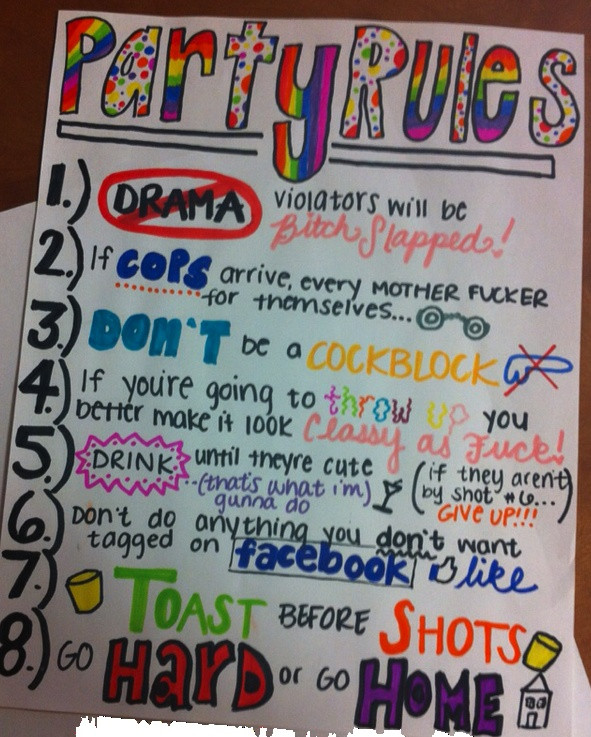 Party Rules
1.) DRAMA violators will be
Bitch Slapped!
2.) If COPS arrive, every MOTHER FUCKER
for themselves...
3.) DON'T be a COCKBLOCK
4.) If you're going to throw up you
better make it look Classy as Fuck!
5.) DRINK until theyre cute
(that's what i'm)
gunna do
(if they aren't
by shot #6...)
GIVE UP!!!
6.) Don't do anything you don't want
tagged on facebook like
7.) TOAST BEFORE SHOTS
8.) GO HARD or GO HOME